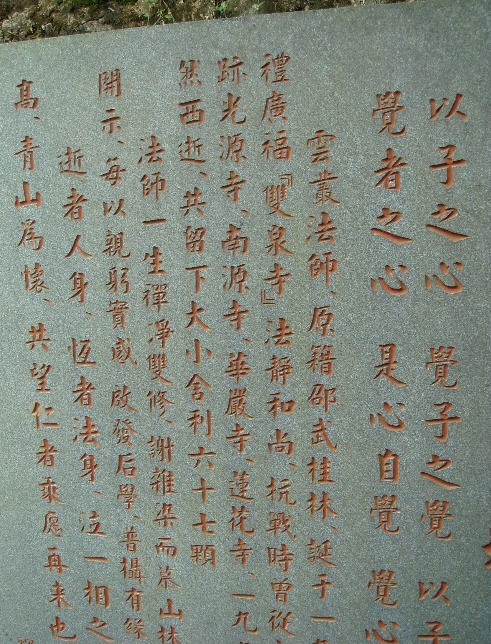 以子之心　覺子之覺　以子
覺者之心　是心自覺　覺心
雲叢法師、原籍邵武桂林、誕于一
禮廣福『雙泉寺』法靜和尚、抗戰時曾從
跡光源寺、南源寺、華嚴寺、蓮花寺、一九
然西逝、共留下大小舍利六十七顆
法師一生禪淨雙修、謝雜染而慕山林
開示、每以親躬實感啟發后學、普攝有緣
逝者人身、恆者法身、泣一相之
高、青山為懷、共望仁者乘愿再来也